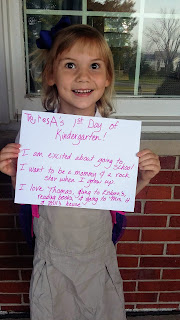 TeresA's 1st Day of
Kindergarten!
I am excited about going to school
I want to be a mommy & a rock
star when I grow up!
I love Thomas, going to
reading books, & going to Mrs. H
& Mrs.